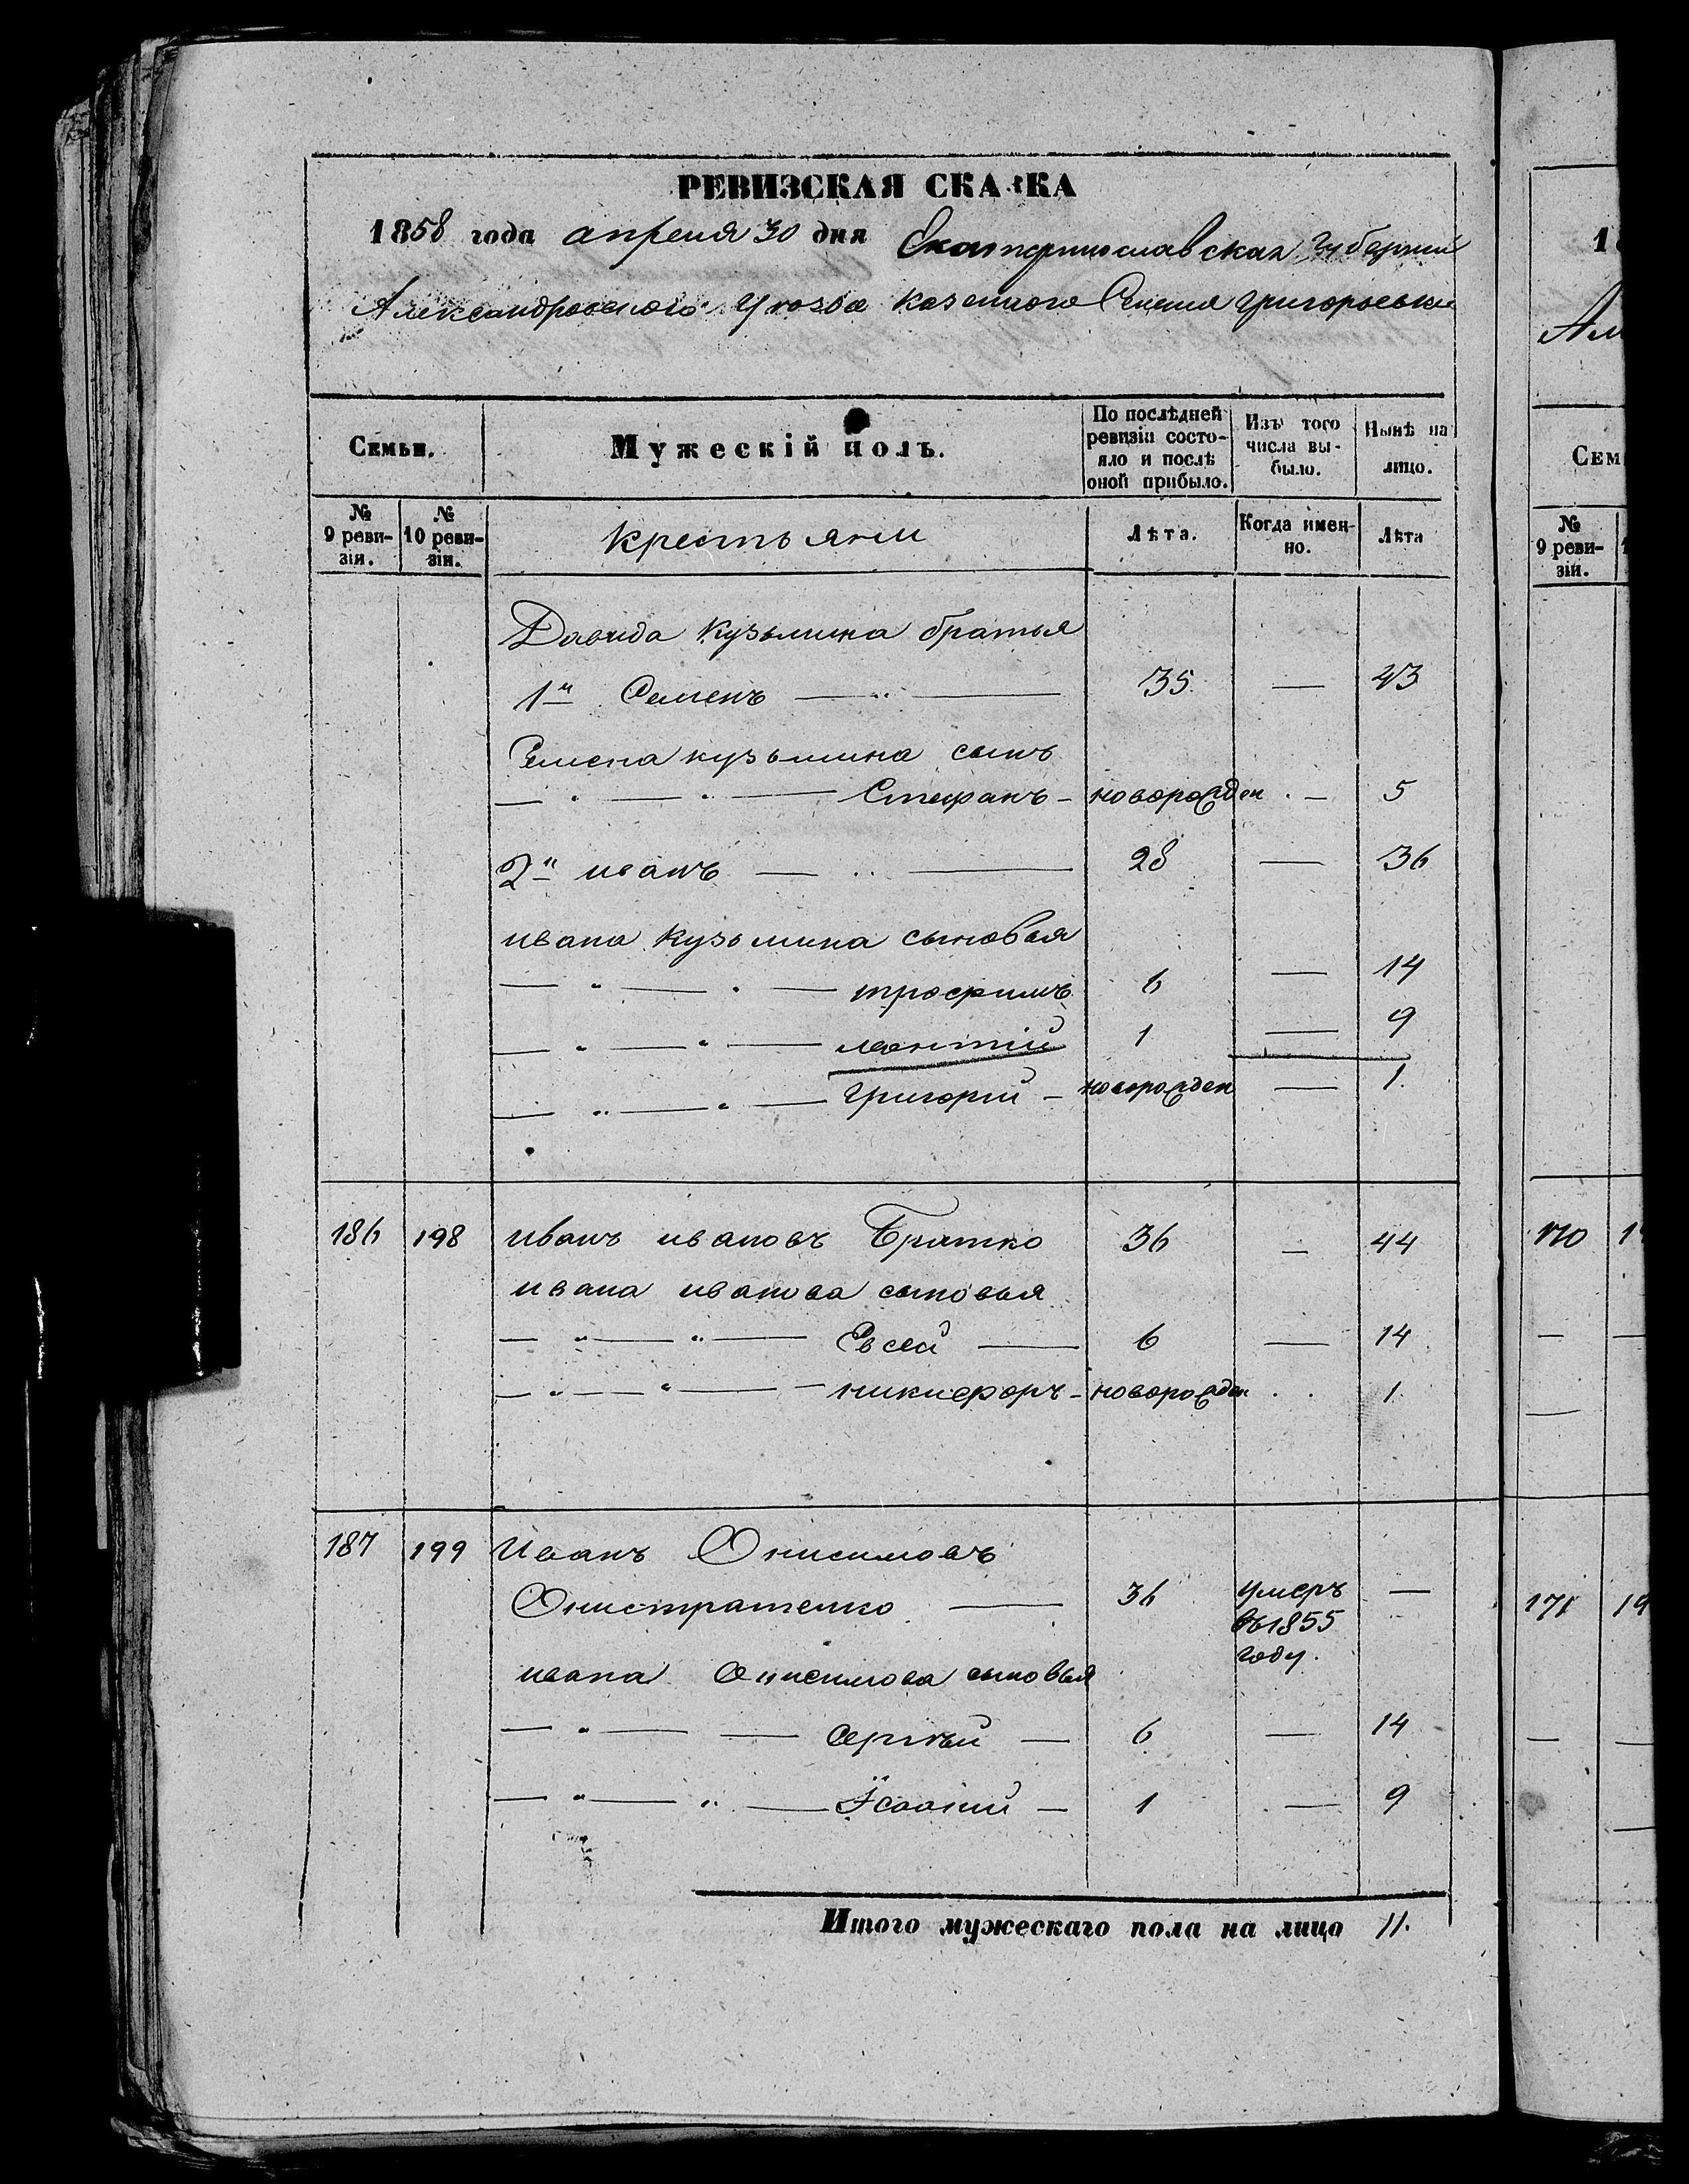 РЕВИЗСКАЯ СКАЗКА
1858 года апреля 30 дня Екатеринославская губернии
Александровского уезда казенного Селения Григорьевки
Семьи. Мужескій полъ. По послѣдней ревизіи состояло и послѣ оной прибыло. Изъ того числа выбыло. Нынѣ на лицо.
№ 9 ревизіи. № 10 ревизіи. крестьяни Лѣта. Когда именно. Лѣта
Давида Кузьмина братья
1й Семенъ — " — 35 — 43
Семена кузьмина сынъ
— " — " — Стефанъ - новорожден . — 5
2й иванъ — " — 28 — 36
ивана Кузьмина сыновья
— " — " — трофимъ 6 — 14
— " — " — леонтій 1 — 9
— " — " — Григорій - новорожден — 1.
186 198 иванъ ивановъ Братко 36 — 44
ивана иванова сыновья
— " — " — Евсей — 6 — 14
— " — " — никифоръ - новорожден . . 1
187 199 Иванъ Онисимовъ
Онистратенко — 36 умеръ —
въ 1855
году.
ивана Онисимова сыновья
— " — — Сергѣй — 6 — 14
— " — " — 1 — 9
Итого мужескаго пола на лицо 11.
1
Ал
Сем
№ 9 ревизіи.
170 1
171 19